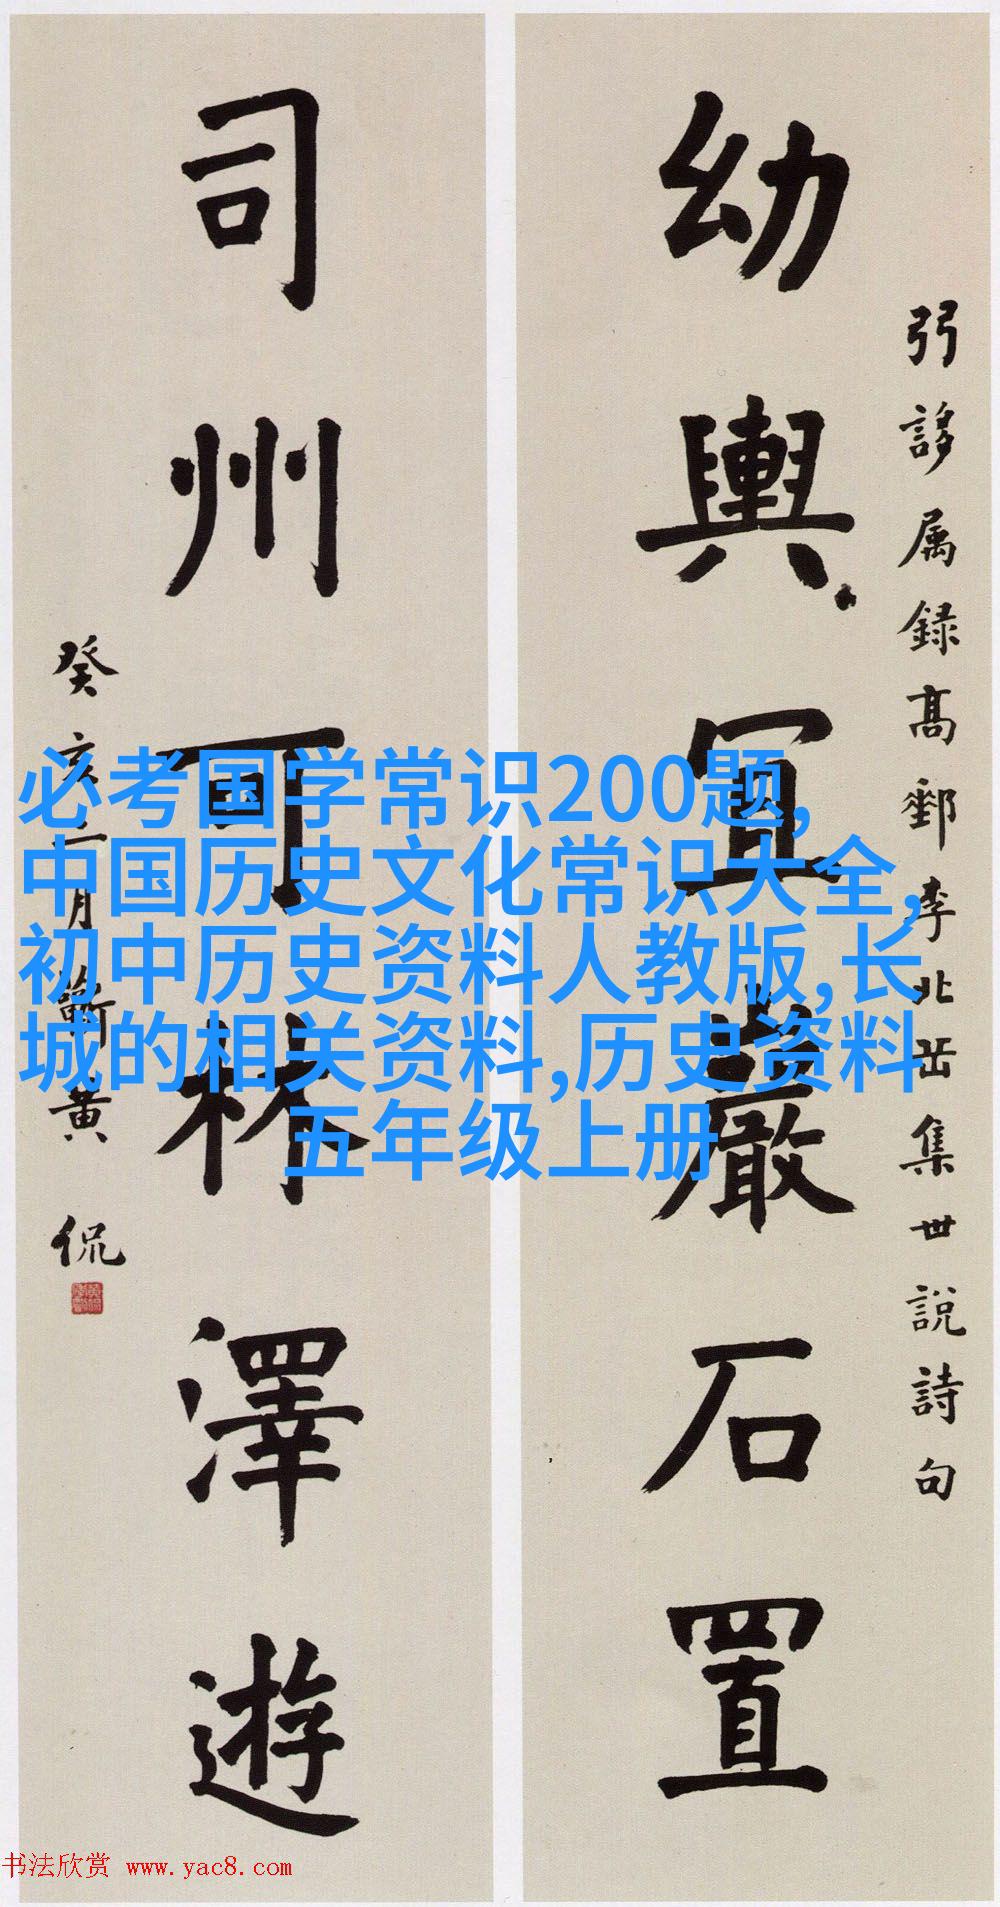 幼輿宜巖石置
弱誃属録高郵李北岳集世説詩句
司州可林澤遊
癸亥二月蘄黄侃
必考国学常识200题,
中国历史文化常识大全,
初中历史资料人教版,长
城的相关资料,历史资料
五年级上册
书法欣赏 www.yac8.com